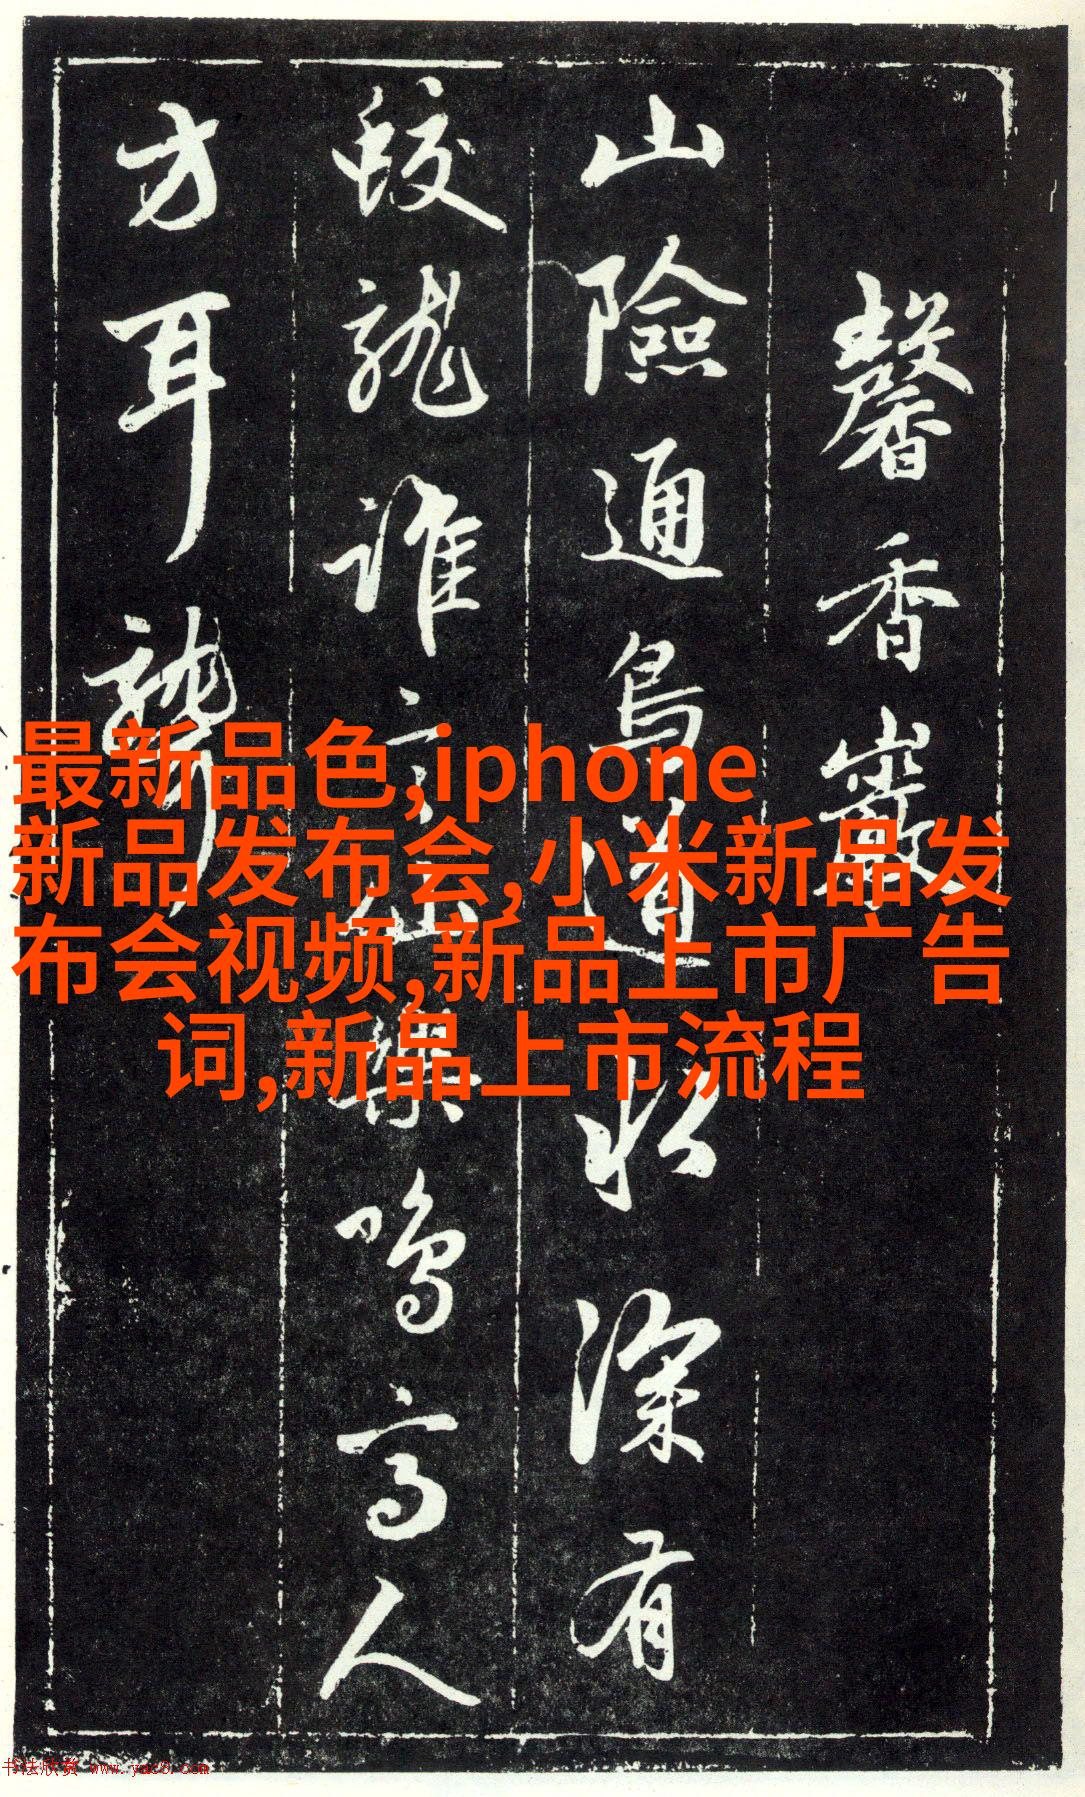 馨香巖
山險通鳥道
深有
蛟龍誰言山樂鳴高人
方耳聾
最新品色,iphone
新品发布会,小米新品发
布会视频,新品上市广告
词,新品上市流程
书法欣赏 www.yac8.com